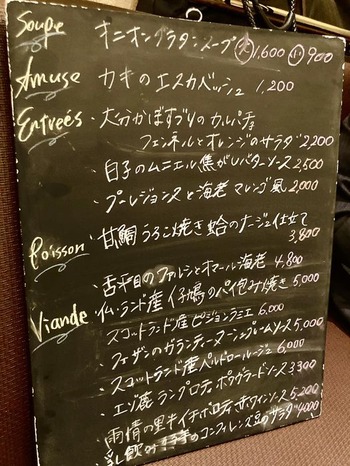 Soupe オニオングラタンスープ 大 1,600 小 900
Amuse カキのエスカベッシュ 1,200
Entrées ・大分かぼすぶりのカルパチョ
フェンネルとオレンジのサラダ 2,200
・白子のムニエル焦がしバターソース 2,500
・プーレジョンヌと海老 マレンゴ風 2,000
Poisson ・甘鯛うろこ焼き蛤のナージュ仕立て
3,800
・舌平目のファルシとオマール海老 4,800
Viande ・仏・ランド産 仔鳩のパイ包み焼き 5,000
スコットランド産ピジョンラミエ 6,000
・フェザンのガランティーヌ シュープレームソース 5,000
・スコットランド産ペルドロールージュ 6,000
・エゾ鹿ランプロティ ポワヴラードソース 3,300
・雨情の里牛イチボロティ 赤ワインソース 5,200
乳飲み のコンフィ レンズ豆のサラダ 4000